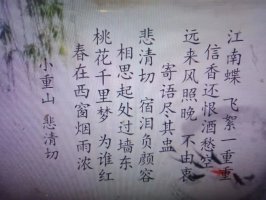 小重山 悲清切
春在西窗烟雨浓
桃花千里梦 为谁红
相思起处过墙东
悲清切 宿泪负颜容
寄语尽其盅
远来风照晚 不由衷
信香还恨酒愁空
江南蝶 飞絮一重重